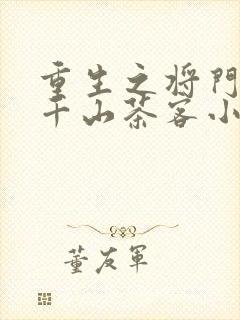 重生之将门
千山茶客小
董友军